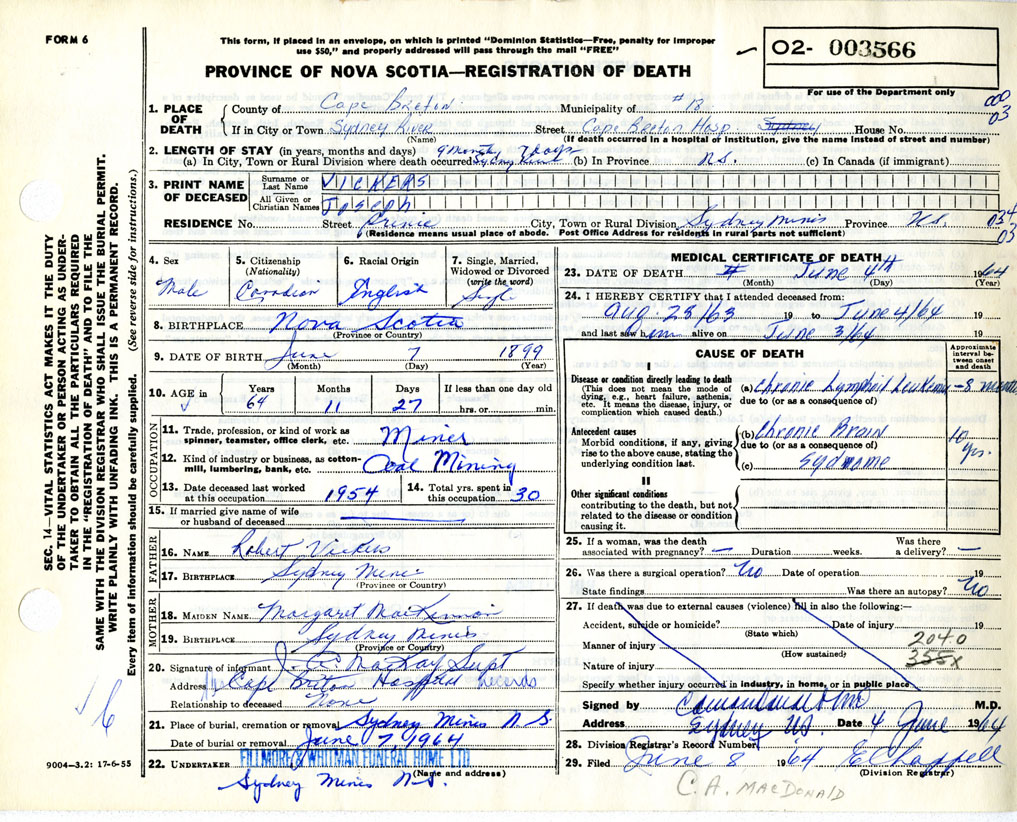 FORM 6
This form, if placed in an envelope, on which is printed "Dominion Statistics—Free, penalty for improper
use $50," and properly addressed will pass through the mail "FREE"
02- 003566
PROVINCE OF NOVA SCOTIA—REGISTRATION OF DEATH
For use of the Department only
000
03
1. PLACE OF DEATH
County of Cape Breton Municipality of #18
If in City or Town Sydney River Street Cape Breton Hosp. Sydney House No.
(Name) (If death occurred in a hospital or institution, give the name instead of street and number)
2. LENGTH OF STAY (in years, months and days) 9 months 7 days
(a) In City, Town or Rural Division where death occurred Sydney River (b) In Province N.S. (c) In Canada (if immigrant)
3. PRINT NAME OF DECEASED
Surname or Last Name VICKERS
All Given or Christian Names JOSEPH
RESIDENCE No. Street City, Town or Rural Division Sydney Mines Province N.S.
034
03
(Residence means usual place of abode. Post Office Address for residents in rural parts not sufficient)
4. Sex
Male
5. Citizenship
(Nationality)
Canadian
6. Racial Origin
English
7. Single, Married,
Widowed or Divorced
(write the word)
Sgl.
8. BIRTHPLACE Nova Scotia
(Province or Country)
9. DATE OF BIRTH June 7 1899
(Month) (Day) (Year)
10. AGE in
Years Months Days If less than one day old
64 11 27 hrs. or min.
OCCUPATION
11. Trade, profession, or kind of work as
spinner, teamster, office clerk, etc. Miner
12. Kind of industry or business, as cotton-
mill, lumbering, bank, etc. Coal Mining
13. Date deceased last worked
at this occupation 1954
14. Total yrs. spent in
this occupation 30
15. If married give name of wife
or husband of deceased
FATHER
16. NAME Robert Vickers
17. BIRTHPLACE Sydney Mines
(Province or Country)
MOTHER
18. MAIDEN NAME Margaret MacKinnon
19. BIRTHPLACE Sydney Mines
(Province or Country)
20. Signature of informant J. C. MacKay Supt
Address Cape Breton Hospital Records
Relationship to deceased None
21. Place of burial, cremation or removal Sydney Mines N.S.
Date of burial or removal June 7 1964
22. UNDERTAKER FILLMORE & WHITMAN FUNERAL HOME LTD.
(Name and address)
Sydney Mines N.S.
MEDICAL CERTIFICATE OF DEATH
23. DATE OF DEATH June 4th 1964
(Month) (Day) (Year)
24. I HEREBY CERTIFY that I attended deceased from:
Aug. 28/63 19 to June 4/64 19
and last saw him alive on June 3/64 19
CAUSE OF DEATH
Approximate
interval be-
tween onset
and death
I
Disease or condition directly leading to death
(This does not mean the mode of
dying, e.g., heart failure, asthenia,
etc. It means the disease, injury, or
complication which caused death.)
(a) Chronic Lymphoid Leukemia - 8 months
due to (or as a consequence of)
Antecedent causes
Morbid conditions, if any, giving
rise to the above cause, stating the
underlying condition last.
(b) Chronic Brain
due to (or as a consequence of)
(c) Sydnome
10
yrs.
II
Other significant conditions
contributing to the death, but not
related to the disease or condition
causing it.
25. If a woman, was the death
associated with pregnancy? — Duration weeks. Was there
a delivery? —
26. Was there a surgical operation? No Date of operation 19
State findings Was there an autopsy? No
27. If death was due to external causes (violence) fill in also the following:—
Accident, suicide or homicide? Date of injury 19
(State which)
Manner of injury
(How sustained)
2040
355x
Nature of injury
Specify whether injury occurred in industry, in home, or in public place
Signed by M.D.
Address Sydney NS. Date 4 June 1964
28. Division Registrar's Record Number
29. Filed June 8 1964 E Chappell
(Division Registrar)
C. A. MACDONALD
SEC. 14—VITAL STATISTICS ACT MAKES IT THE DUTY
OF THE UNDERTAKER OR PERSON ACTING AS UNDER-
TAKER TO OBTAIN ALL THE PARTICULARS REQUIRED
IN THE "REGISTRATION OF DEATH" AND TO FILE THE
SAME WITH THE DIVISION REGISTRAR WHO SHALL ISSUE THE BURIAL PERMIT.
WRITE PLAINLY WITH UNFADING INK. THIS IS A PERMANENT RECORD.
Every item of information should be carefully supplied. (See reverse side for instructions.)
6
9004—3.2: 17-6-55